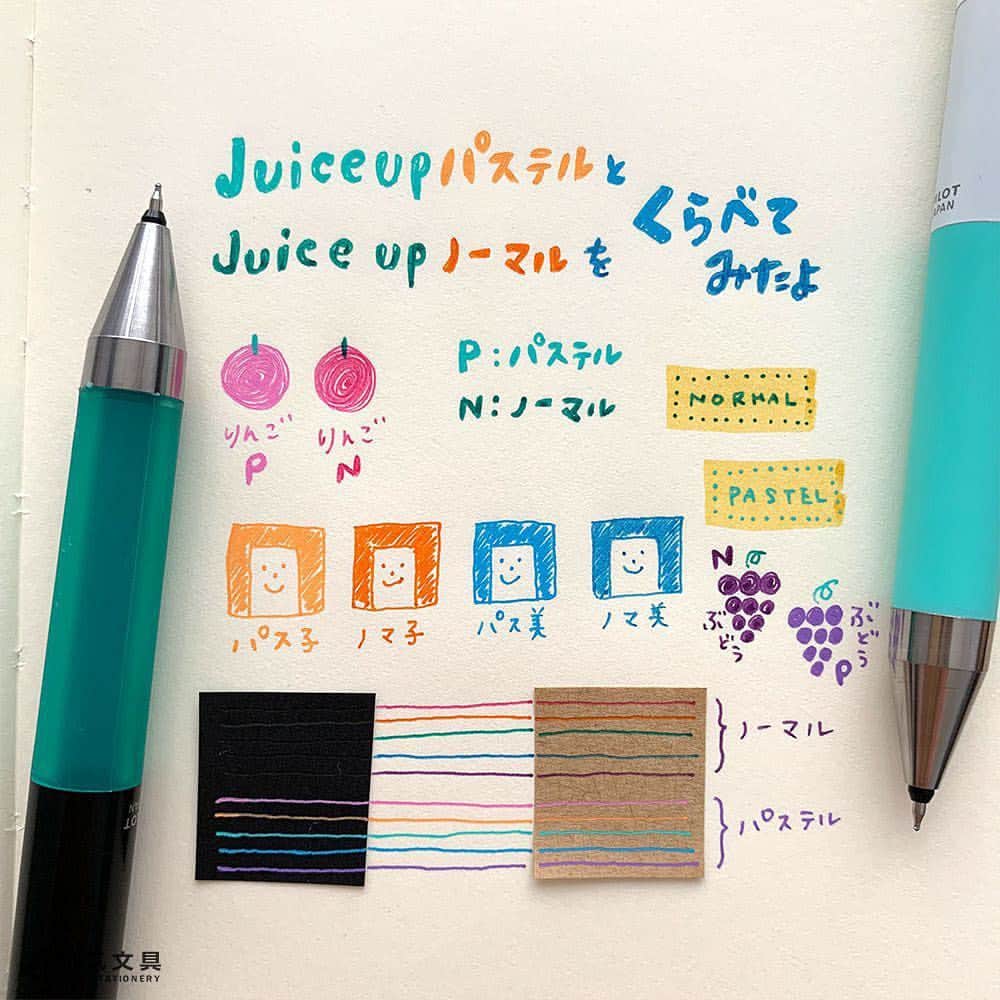 Juice up パステルと
Juice up ノーマルを
くらべて
みたよ
りんご
P
りんご
N
P:パステル
N:ノーマル
NORMAL
PASTEL
パス子
ノマ子
パス美
ノマ美
N
ぶどう
ぶどう
P
ノーマル
パステル
文具